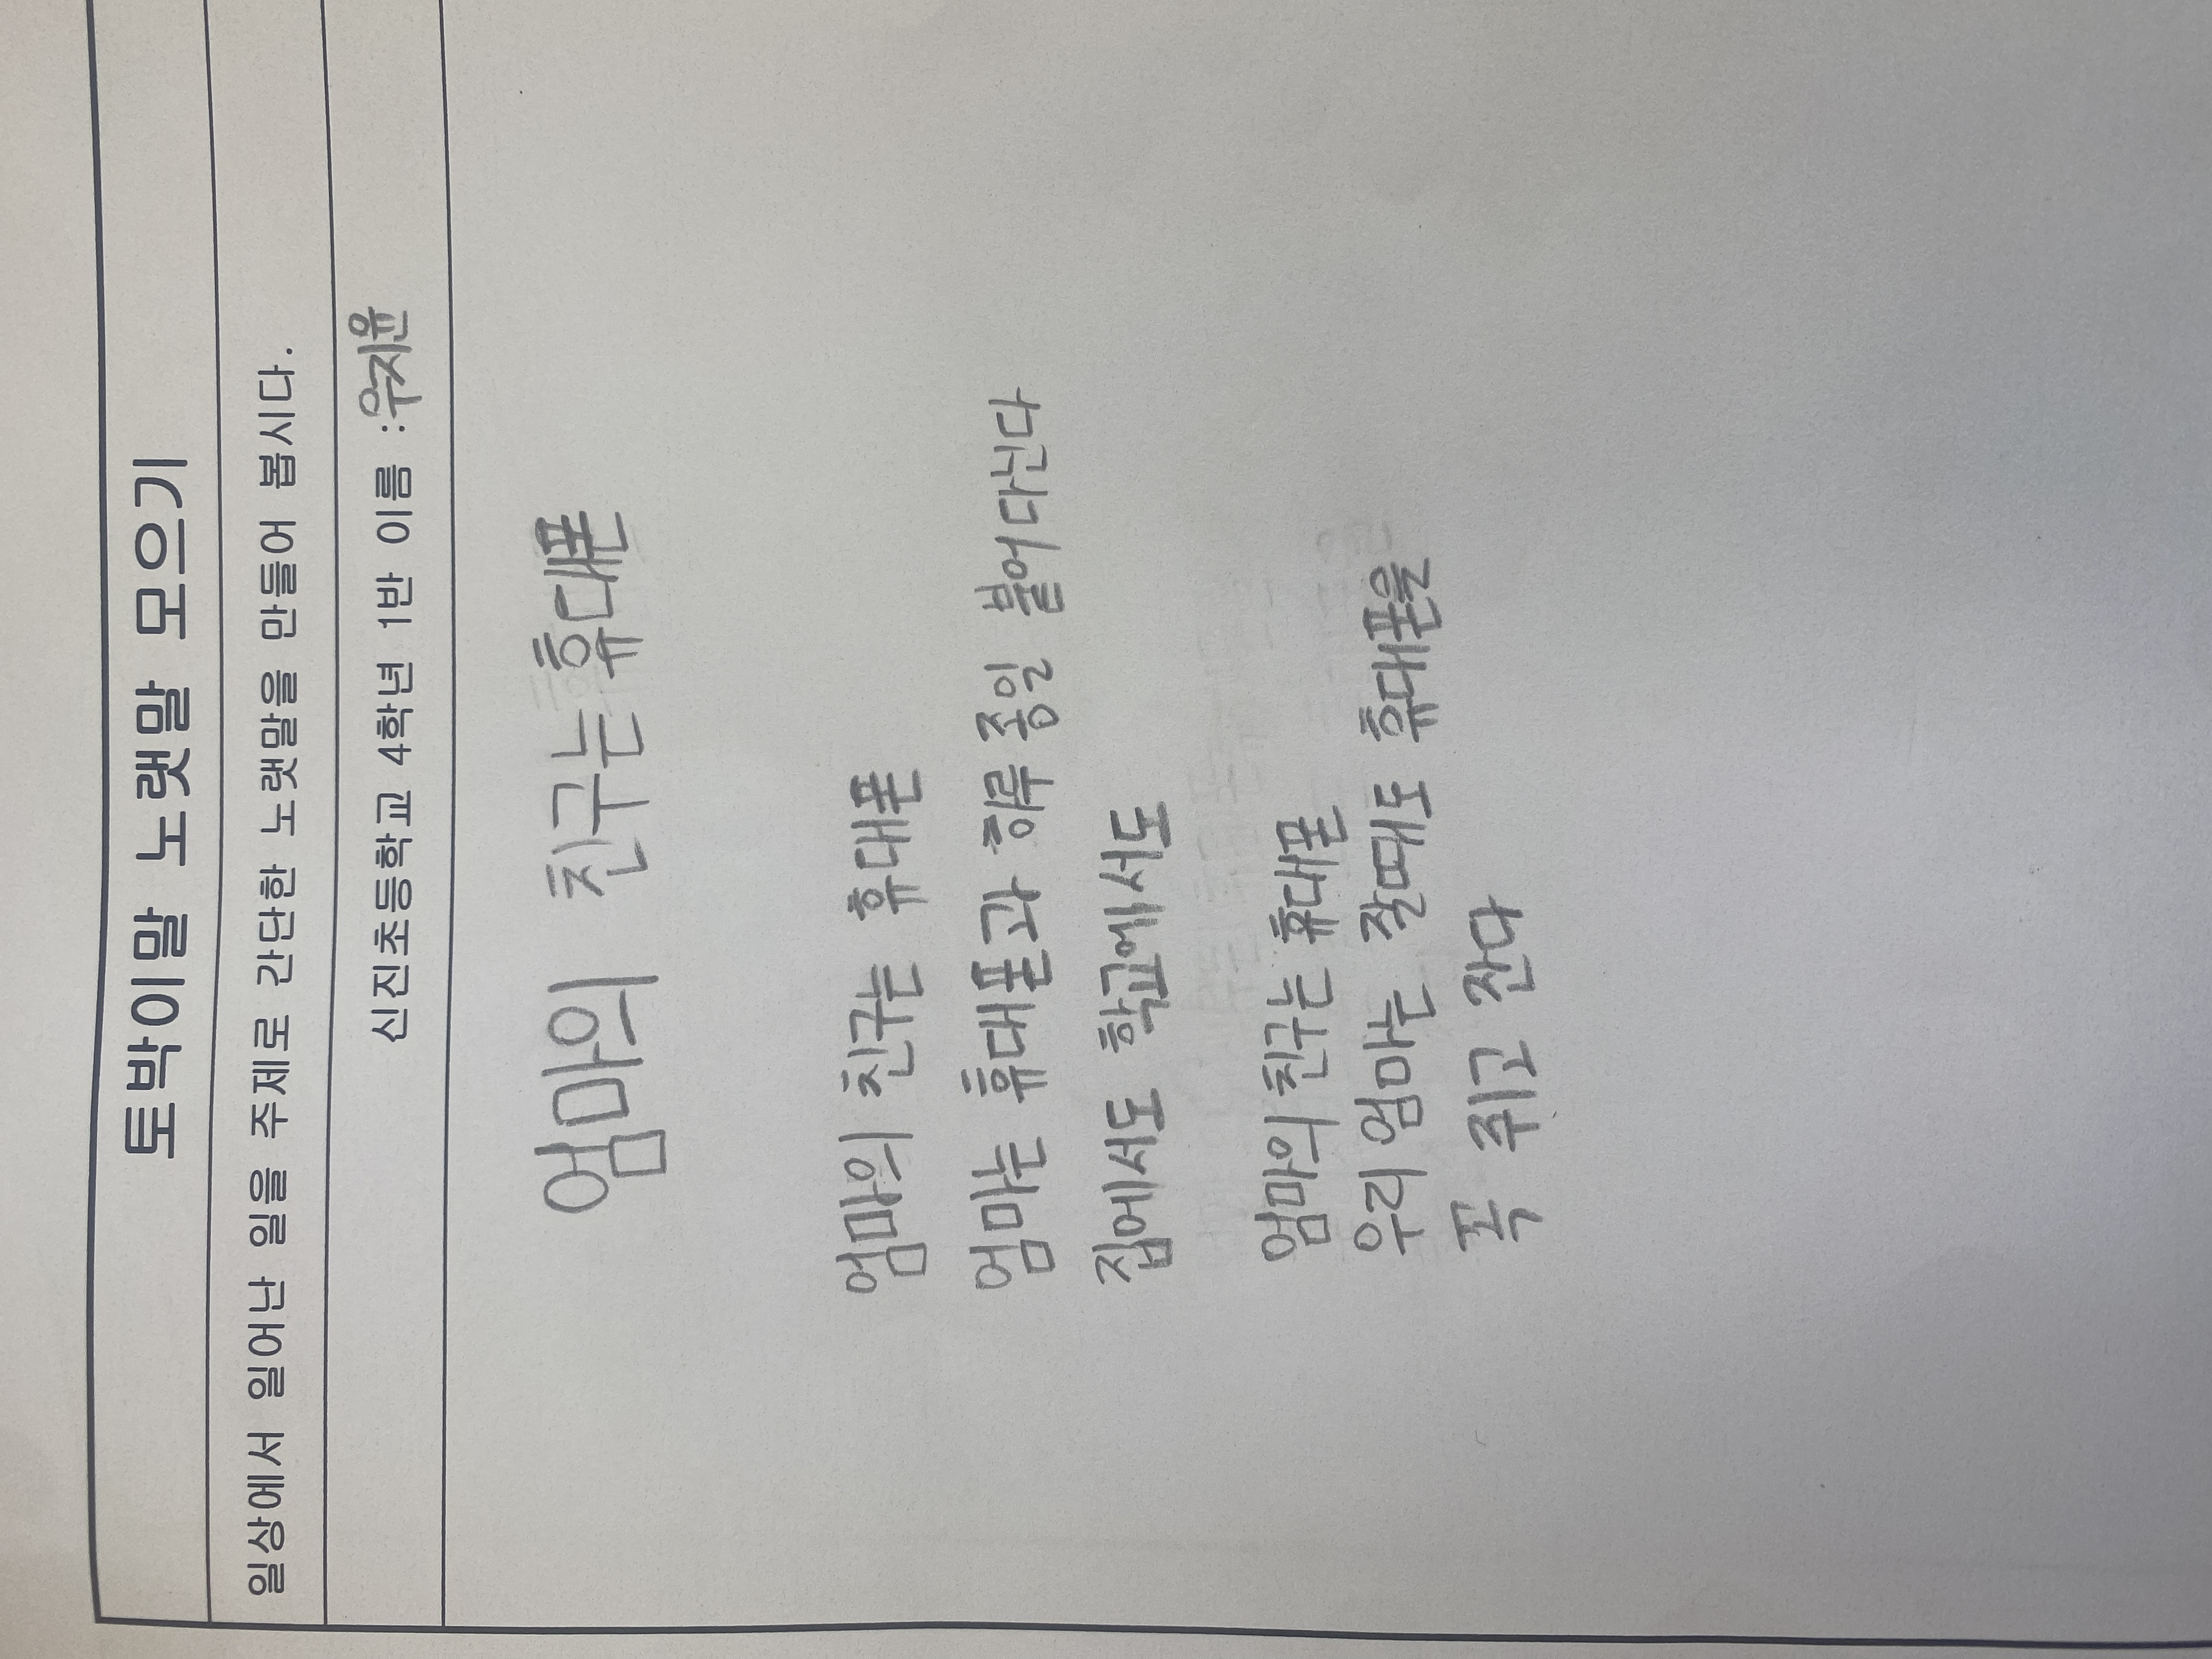 토박이말 노랫말 모으기
일상에서 일어난 일을 주제로 간단한 노랫말을 만들어 봅시다.
신진초등학교 4학년 1반 이름 :우지윤
엄마의 친구는 휴대폰
엄마의 친구는 휴대폰
엄마는 휴대폰과 하루 종일 붙어 다닌다
집에서도 학교에서도
엄마의 친구는 휴대폰
우리 엄마는 잘때도 휴대폰을
꼭 쥐고 잔다